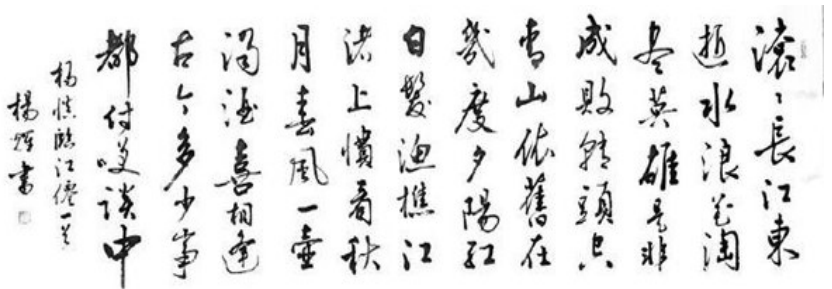 滚〻長江東
逝水浪花淘
尽英雄是非
成敗轉頭空
青山依舊在
幾度夕陽紅
白髮漁樵江
渚上慣看秋
月春風一壺
濁酒喜相逢
古今多少事
都付笑談中
楊慎臨江僊一首
楊輝書